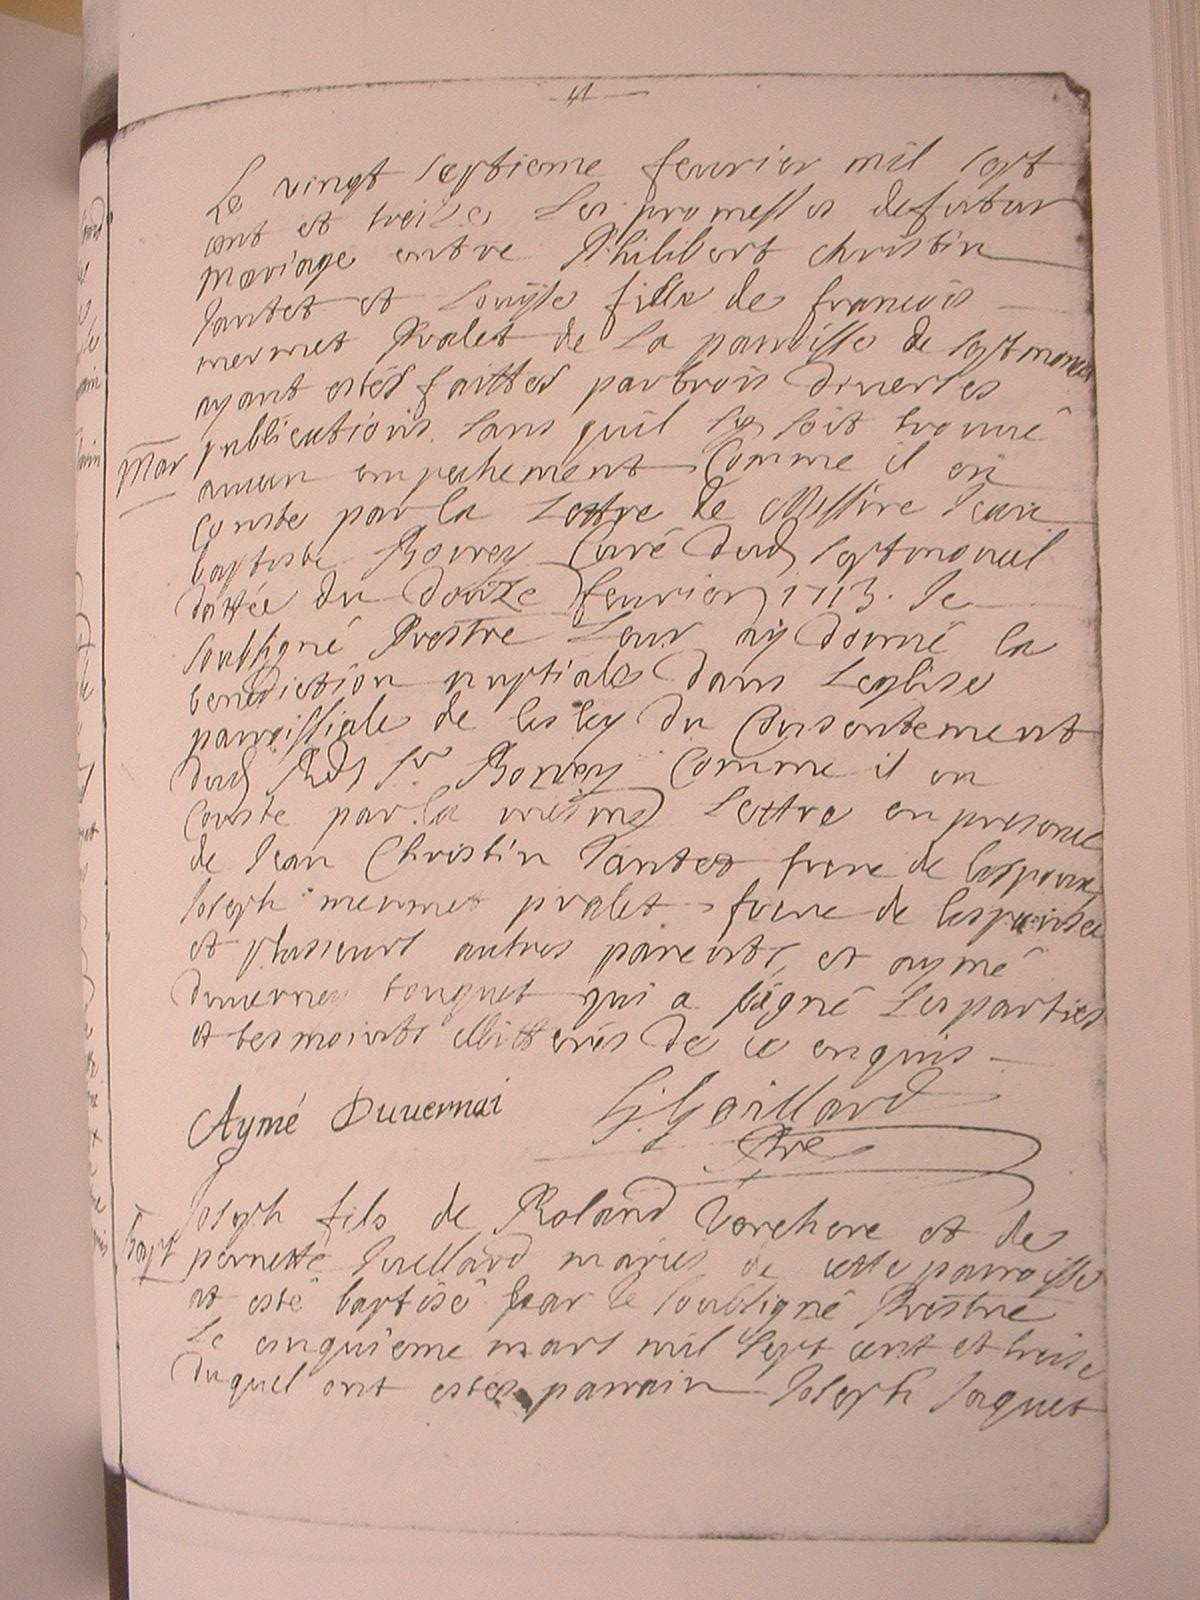 Le vingt septieme feuvrier mil sept
cent et treize Les promesses defutur
Mariage entre Philibert christin
Tantet et Louyse fille de francois
mermet Pralet de La paroisse de septmoncel
ayant estés faittes partrois diverses
Mar publications sans quil sy soit trouvé
aucun empechement Comme il en
Conste par La Lettre de Messire Jean
baptiste Bonvey Curé dud septmoncel
dattée du douze feuvrier 1713. Je
soubsigné Prestre Leur ay donné la
benediction nuptiale dans Leglise
parroissiale de lesley du Consentement
dud Rds sr Bonvey Comme il en
Conste par la mesme Lettre enpresence
de Jean Christin Tantet frere de lespoux
Joseph mermet pralet frere de lespouse
et plusieurs autres parents, et aymé
duverney touquet qui a signé Les parties
et tesmoints illitterés de ce enquis
Aymé Duuernai G. Gaillard
Pre
Joseph fils de Roland Verchere et de
Bapt pernette Juillard mariés de cette parroisse
at esté baptisé par le soubsigné Prestre
Le cinquieme mars mil sept cent et treise
duquel ont estés parrain Joseph Jaquet